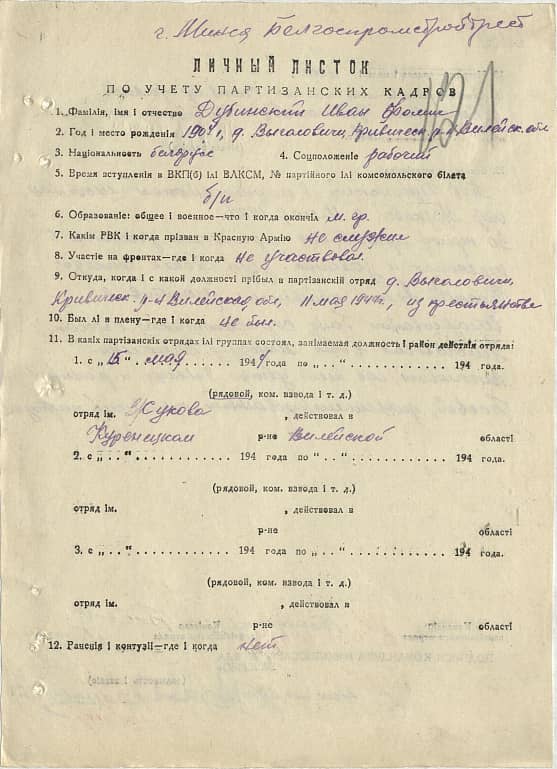 г. Минск Белгоспромстройтрест
ЛИЧНЫЙ ЛИСТОК
ПО УЧЕТУ ПАРТИЗАНСКИХ КАДРОВ
1. Фамілія, імя і отчество Дубинский Иван Фомич
2. Год і место рожденія 1904, д. Выголовичи, Кривическ. р-н Вилейск. обл
3. Національность белорус 4. Соцположеніе рабочий
5. Время вступленія в ВКП(б) ілі ВЛКСМ, № партійного ілі комсомольского білета
б/п
6. Образованіе: общее і военное—что і когда окончіл м. гр.
7. Какім РВК і когда прізван в Красную Армію не служил
8. Участіе на фронтах—где і когда не участвовал
9. Откуда, когда і с какой должності прібыл в партізанскій отряд д. Выголовичи,
Кривичск. р-н Вилейская обл, 11 мая 1944 г, из крестьянства
10. Был лі в плену—где і когда не был.
11. В какіх партізанскіх отрядах ілі группах состоял, занімаемая должность і район действія отряда:
1. с „15“ мая 1944 года по „ . . “ . . . . . . . . 194 года.
(рядовой, ком. взвода і т. д.)
отряд ім. Жукова , действовал в
Куренецком р-не Вилейской області
2. с „ . . “ . . . . . . . . . . . . 194 года по “ . . “ . . . . . . . . . . . . 194 года.
(рядовой, ком. взвода і т. д.)
отряд ім. , действовал в
р-не області
3. с „ . . “ . . . . . . . . . . . . 194 года по „ . . “ . . . . . . . . . . . . 194 года.
(рядовой, ком. взвода і т. д.)
отряд ім. , действовал в
р-не області
12. Раненія і контузіі—где і когда нет